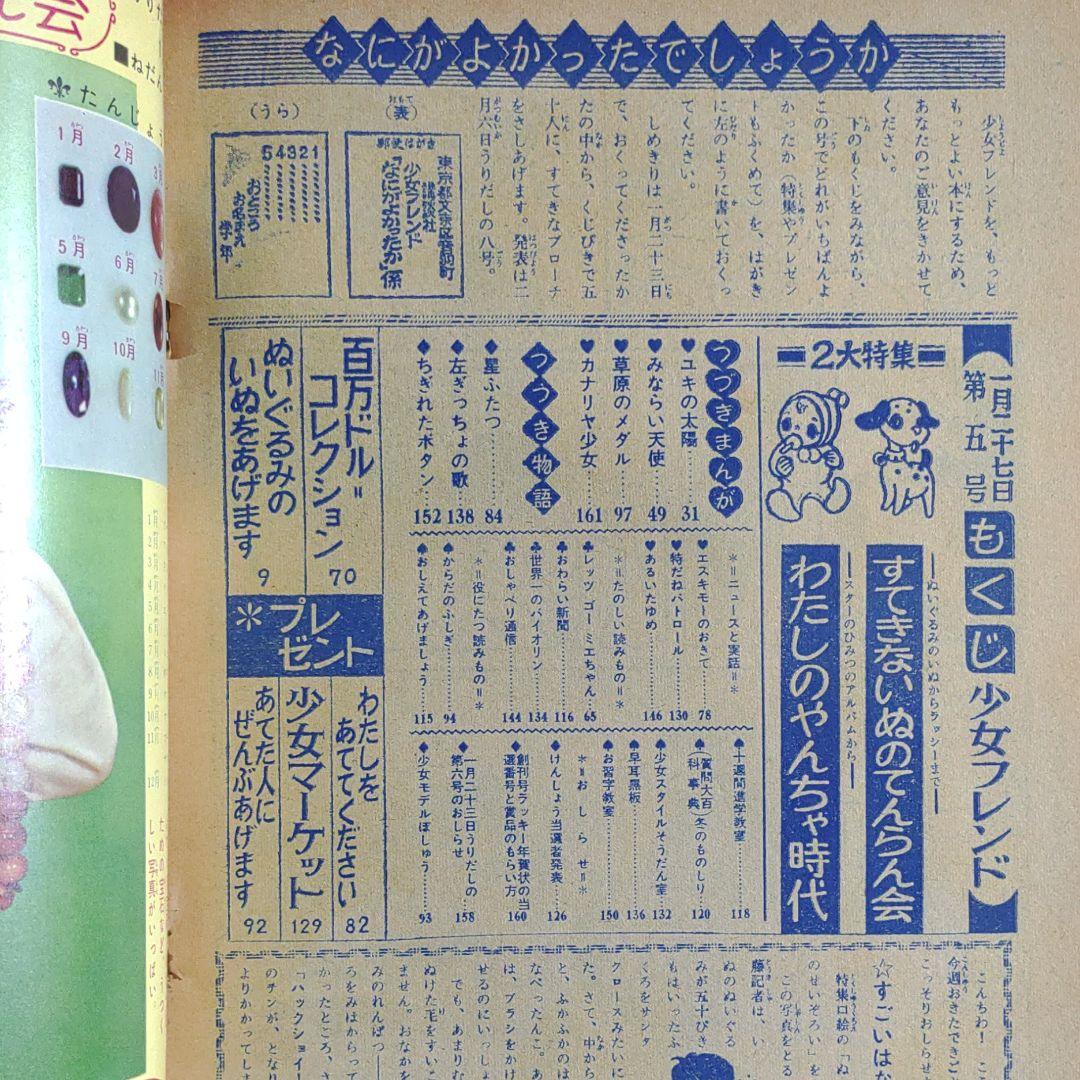 なにがよかったでしょうか
少女フレンドを、もっと
もっとよい本にするため、
あなたのご意見をきかせて
ください。
下のもくじをみながら、
この号でどれがいちばんよ
かったか（特集やプレゼン
トもふくめて）を、はがき
に左のように書いておくっ
てください。
しめきりは一月二十三日
で、おくってくださったか
たの中から、くじびきで五
十人に、すてきなブローチ
をさしあげます。発表は二
月六日うりだしの八号。
（表）
郵便はがき
東京都文京区音羽町
講談社
少女フレンド
「なにがよかったか」係
（うら）
1
2
3
4
5
おところ
お名まえ
学年
【一月二十七日
第五号
もくじ
少女フレンド】
2大特集
―ぬいぐるみのいぬからラッシーまで―
すてきないぬのてんらん会
―スターのひみつのアルバムから―
わたしのやんちゃ時代
つづきまんが
♥ユキの太陽……31
♥みならい天使……49
♥草原のメダル……97
♥カナリヤ少女……161
つづき物語
♦星ふたつ……84
♦左ぎっちょの歌……138
♦ちぎれたボタン……152
＊＝ニュースと実話＝＊
♥エスキモーのおきて……78
♥特だねパトロール……130
♥あるいたゆめ……146
＊＝たのしい読みもの＝＊
♣レッツゴーミエちゃん……65
♣おわらい新聞……116
♣世界一のバイオリン……134
♣おしゃべり通信……144
＊＝役にたつ読みもの＝＊
♠からだのふしぎ……94
♠おしえてあげましょう……115
♠十週間進学教室……118
♠（質問大百科事典）冬のものしり……120
♠少女スタイルそうだん室……132
♠早耳黒板……136
♠お習字教室……150
＊＝おしらせ＝＊
♦けんしょう当選者発表……126
♦創刊号ラッキー年賀状の当
選番号と賞品のもらい方……160
♦一月二十三日うりだしの
第六号のおしらせ……158
♦少女モデルぼしゅう……93
百万ドル＝
コレクション 70
ぬいぐるみの
いぬをあげます 9
＊プレゼント
わたしを
あててください 82
少女マーケット 129
あてた人に
ぜんぶあげます 92
こんちわ！
今週おきたできご
こっそりおしらせ
☆すごいはな
特集口絵の「ぬ
のせいぞろい」を
この写真をとる
藤記者は、い
ぬのぬいぐる
みが五十ぴき
もはいったふ
くろをサンタ
クロースみたいに
た。さて、中から
と、ふかふかのは
なぺったんこ。あ
は、ブラシをかけ
せるのにいっしょ
でも、あまりむ
ぬけた毛をすいこ
ません。おなかを
みのれんぱつ――
ろをみはからって
かったところ、さ
「ハックショイー
のチンが、となり
よりかかってしま
会
■ねだん
たんじょう
1月
2月
3月
5月
6月
7月
9月
10月
11月
しい写真がいっぱい